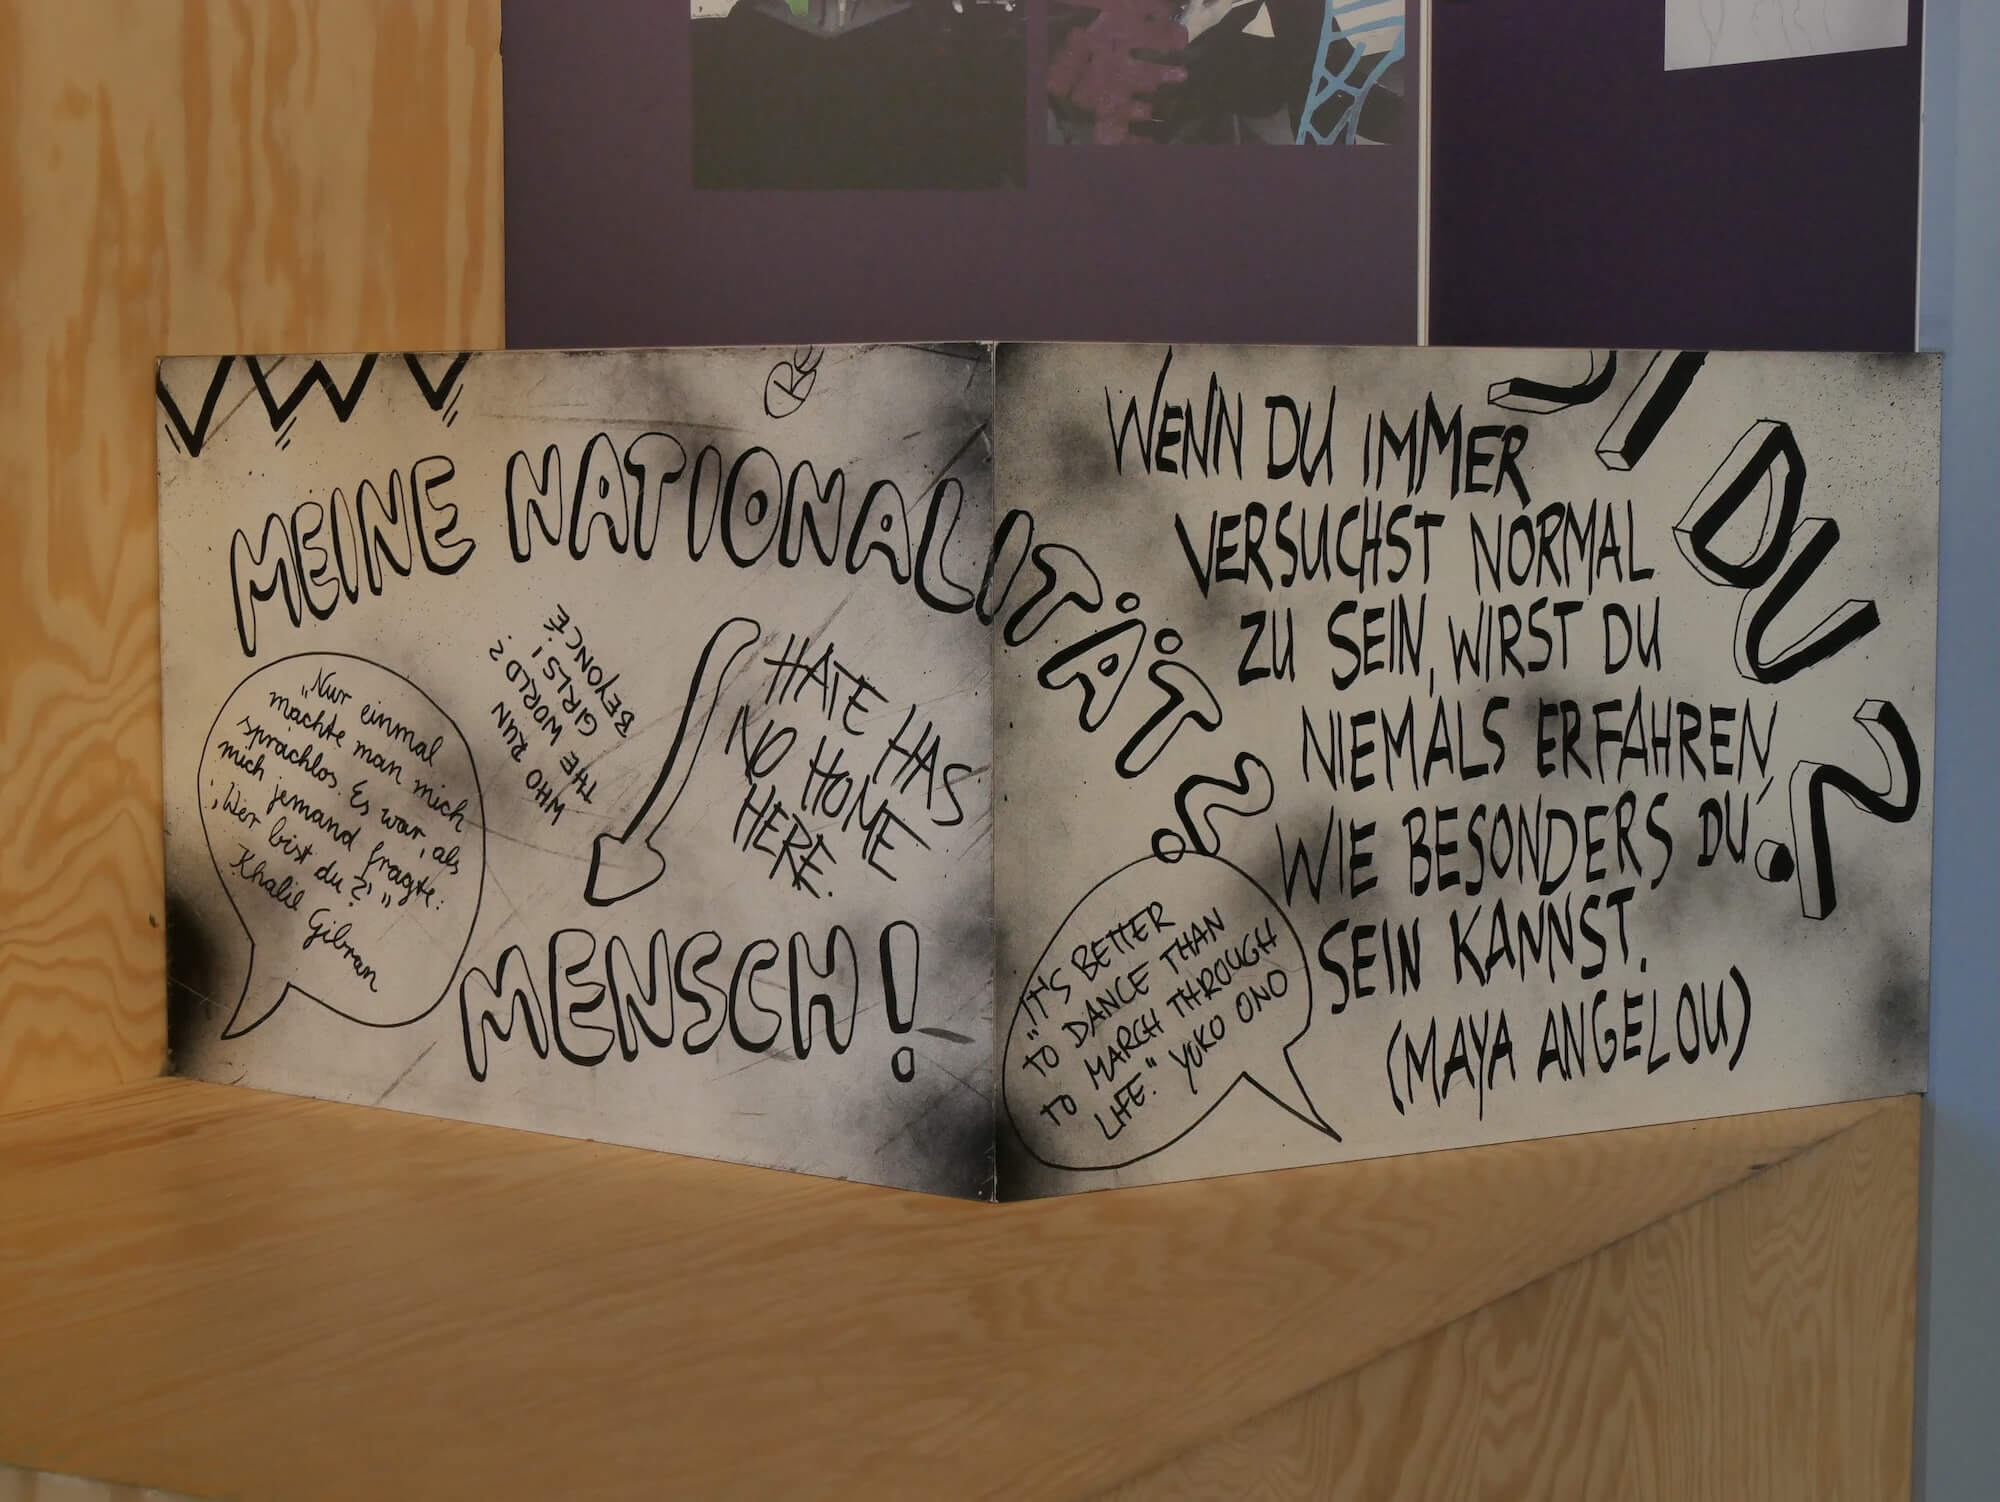 MEINE NATIONALITÄT?
MENSCH!
„Nur einmal
machte man mich
sprachlos. Es war, als
mich jemand fragte:
‚Wer bist du?‘“
Khalil Gibran
WHO RUN
THE WORLD?
GIRLS!
BEYONCÉ
HATE HAS
NO HOME
HERE.
WENN DU IMMER
VERSUCHST NORMAL
ZU SEIN, WIRST DU
NIEMALS ERFAHREN,
WIE BESONDERS DU
SEIN KANNST.
(MAYA ANGELOU)
DU?
„IT'S BETTER
TO DANCE THAN
TO MARCH THROUGH
LIFE.“ YOKO ONO